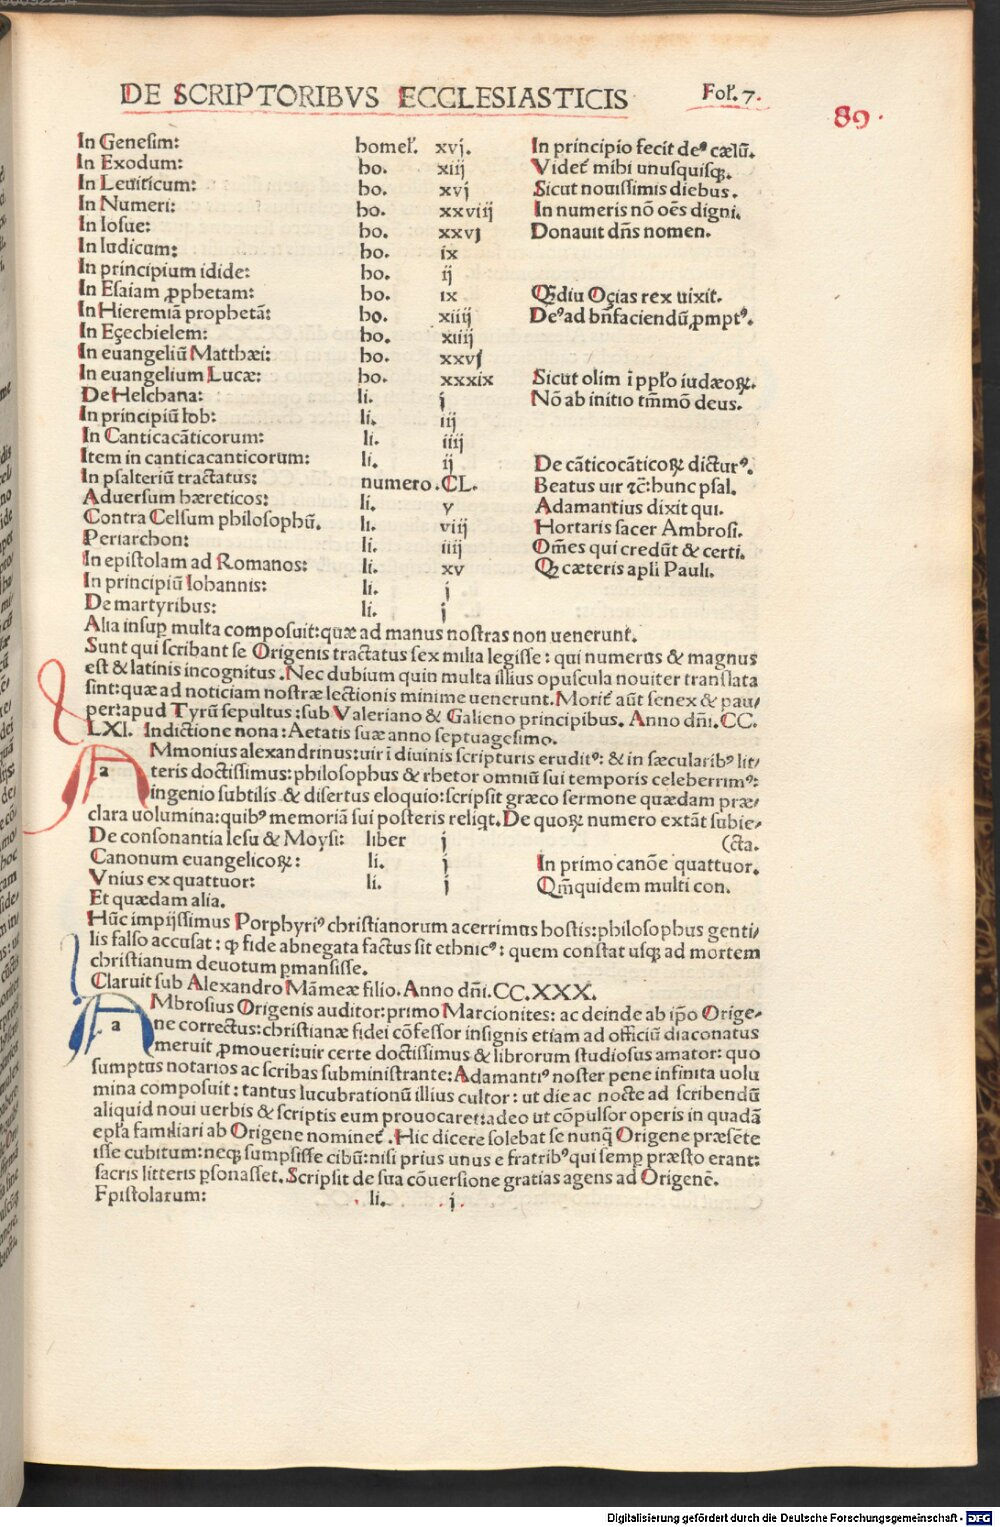 DE SCRIPTORIBVS ECCLESIASTICIS Fol. 7.
89.
In Genesim: homel'. xvj. In principio fecit deꝰ cælū.
In Exodum: ho. xiij Videt' mihi unusquisqꝫ.
In Leuiticum: ho. xvj Sicut nouissimis diebus.
In Numeri: ho. xxviij In numeris nō oēs digni.
In Iosue: ho. xxvj Donauit dn̄s nomen.
In Iudicum: ho. ix
In principium idide: ho. ij
In Esaiam ꝓphetam: ho. ix Qȝdiu Oçias rex uixit.
In Hieremiā prophetā: ho. xiiij Deꝰ ad bn̄faciendū ꝓmptꝰ.
In Eçechielem: ho. xiiij
In euangeliū Matthæi: ho. xxvj
In euangelium Lucæ: ho. xxxix Sicut olim ī pp̄lo iudæoꝝ.
De Helchana: li. j Nō ab initio tm̄mō deus.
In principiū Iob: li. iij
In Canticacāticorum: li. iiij
Item in canticacanticorum: li. ij De cāticocāticoꝝ dicturꝰ.
In psalteriū tractatus: numero .CL. Beatus uir ⁊c̄: hunc psal.
Aduersum hæreticos: li. v Adamantius dixit qui.
Contra Celsum philosophū. li. viij Hortaris sacer Ambrosi.
Periarchon: li. iiij Om̄es qui credūt & certi.
In epistolam ad Romanos: li. xv Qȝ cæteris apli Pauli.
In principiū Iohannis: li. j
De martyribus: li. j
Alia insuꝑ multa composuit: quæ ad manus nostras non uenerunt.
Sunt qui scribant se Origenis tractatus sex milia legisse: qui numerus & magnus
est & latinis incognitus. Nec dubium quin multa illius opuscula nouiter translata
sint: quæ ad noticiam nostræ lectionis minime uenerunt. Morit' aūt senex & pau/
per: apud Tyrū sepultus: sub Valeriano & Galieno principibus. Anno dn̄i. CC.
LXI. Indictione nona: Aetatis suæ anno septuagesimo.
a
AMmonius alexandrinus: uir ī diuinis scripturis eruditꝰ: & in sæcularibꝰ lit/
teris doctissimus: philosophus & rhetor omniū sui temporis celeberrimꝰ:
ingenio subtilis & disertus eloquio: scripsit græco sermone quædam præ/
clara uolumina: quibꝰ memoriā sui posteris reliqt. De quoꝝ numero extāt subie/
De consonantia Iesu & Moysi: liber j (cta.
Canonum euangelicoꝝ: li. j In primo canōe quattuor.
Vnius ex quattuor: li. j Qm̄quidem multi con.
Et quædam alia.
Hūc impijssimus Porphyriꝰ christianorum acerrimus hostis: philosophus genti/
lis falso accusat: ꝙ fide abnegata factus sit ethnicꝰ: quem constat usqꝫ ad mortem
christianum deuotum ꝑmansisse.
Claruit sub Alexandro Māmeæ filio. Anno dn̄i. CC.XXX.
a
AMbrosius Origenis auditor: primo Marcionites: ac deinde ab ip̄o Orige/
ne correctus: christianæ fidei cōfessor insignis etiam ad officiū diaconatus
meruit ꝓmoueri: uir certe doctissimus & librorum studiosus amator: quo
sumptus notarios ac scribas subministrante: Adamantiꝰ noster pene infinita uolu
mina composuit: tantus lucubrationū illius cultor: ut die ac nocte ad scribendū
aliquid noui uerbis & scriptis eum prouocaret: adeo ut cōpulsor operis in quadā
epl̄a familiari ab Origene nominet'. Hic dicere solebat se nunq̄ Origene præsēte
isse cubitum: neqꝫ sumpsisse cibū: nisi prius unus e fratribꝰ qui semꝑ præsto erant:
sacris litteris ꝑsonasset. Scripsit de sua cōuersione gratias agens ad Origenē.
Epistolarum: li. j.
Digitalisierung gefördert durch die Deutsche Forschungsgemeinschaft - DFG